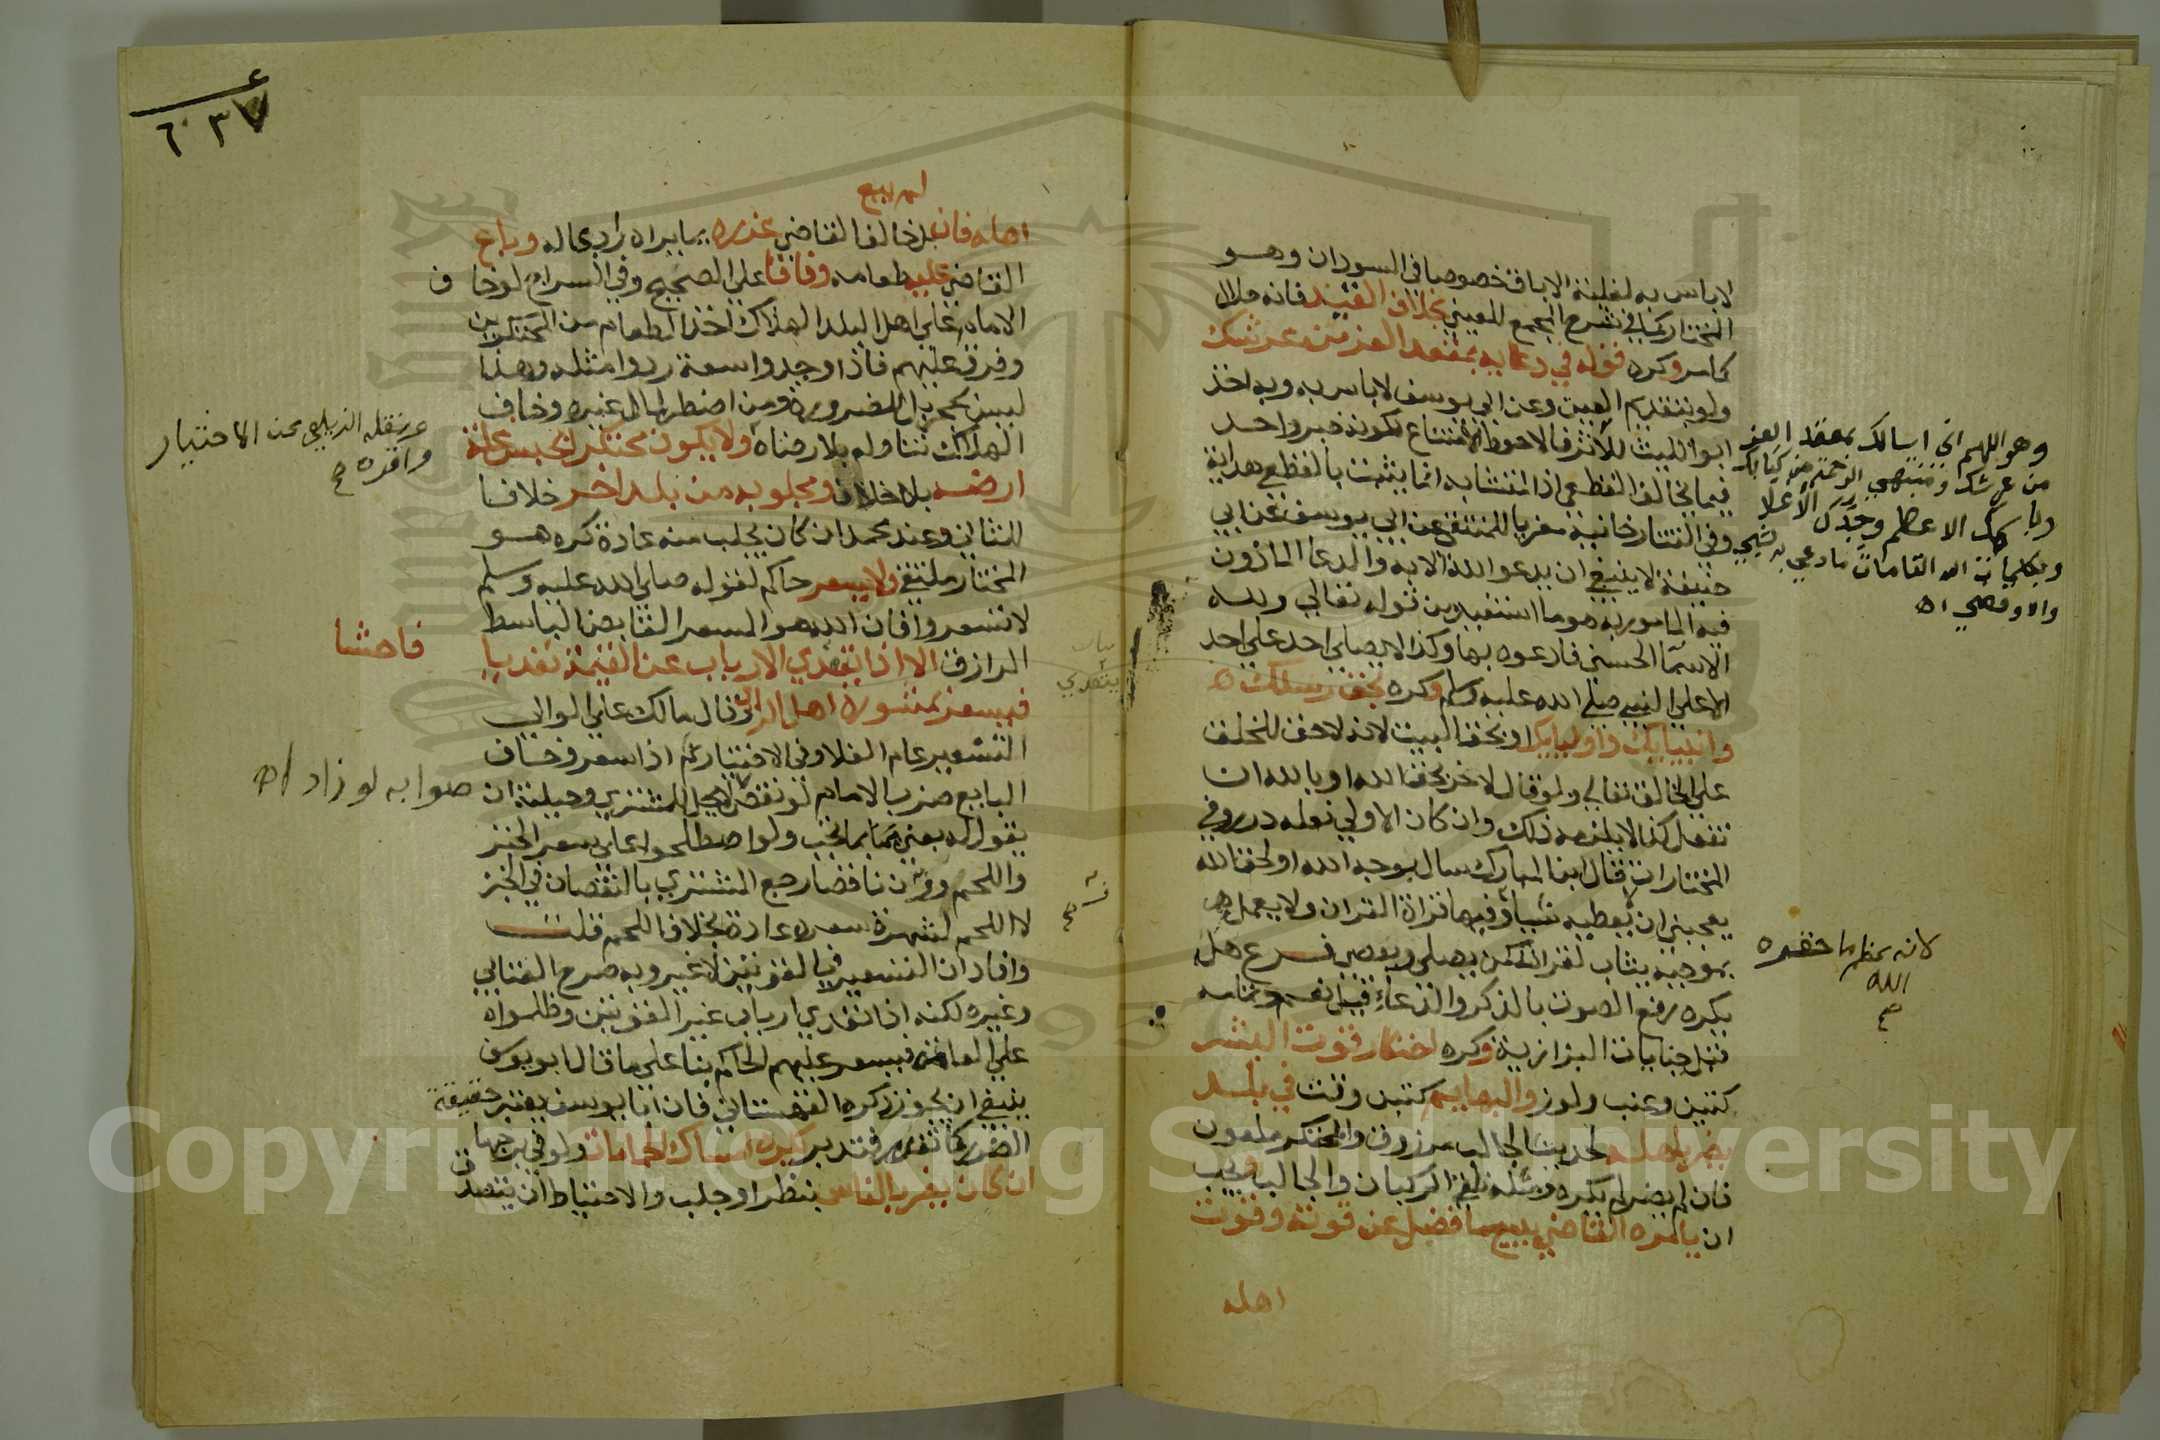 لاباس به لغلبة الاباق خصوصا في السودان وهو
المختار كما في شرح المجمع للعيني بخلاف القيد فانه حلال
كما مر وكره قوله في دعايه بمقعد العز من عرشك
ولو بتقديم العين وعن ابي يوسف لا باس به وبه اخذ
ابو الليث للاثر فالاحوط الامتناع لكونه خبر واحد
فيما يخالف القطعي اذ المتشابه انما يثبت بالقطعي هداية
وفي التتارخانية معزيا للمنتقى عن ابي يوسف عن ابي
حنيفة لا ينبغي ان يدعو الله الا به والدعا الماذون
فيه المامور به هو ما استفيد من قوله تعالي ولله
الاسما الحسني فادعوه بها وكذا لا يصلي احد علي احد
الا علي النبي صلي الله عليه وسلم وكره بحق رسلك
وانبيايك واوليايك او بحق البيت لانه لا حق للخلق
علي الخالق تعالي ولو قال لاخر بحق الله او بالله ان
تفعل كذا لا يلزمه ذلك وان كان الاولي فعله درر وفي
المختارات قال ابن المبارك سال بوجه الله او لحق الله
يعجبني ان لا يعطيه شيا وفيها قراة القران ولا يعمل
بموجبه يثاب لقراته كمن يصلي ويعصي فرع هل
يكره رفع الصوت بالذكر والدعاء قيل نعم وتمامه
قبل جنايات البزازية وكره احتكار قوت البشر
كتين وعنب ولوز والبهايم كتبن وقت في بلد
يضر باهله لحديث الجالب مرزوق والمحتكر ملعون
فان لم يضر لم يكره ومثله تلقي الركبان والجالب ويجب
ان يامره القاضي ببيع ما فضل عن قوته وقوت
اهله
وهو اللهم اني اسالك بمعقد العز
من عرشك ومنتهي الرحمة من كتابك
وباسمك الاعظم وجدك الاعلا
وبكلماتك التامات
لانه يعظم ما حقره
الله
صح
٦٠٣٧
لم يبع
اهله فان بل خالف القاضي عزره بما يراه رادعا له وباع
القاضي عليه طعامه وفاقا علي الصحيح وفي السراج لو خاف
الامام علي اهل البلد الهلاك اخذ الطعام من المحتكرين
وفرق عليهم فاذا وجدوا سعة ردوا مثله وهذا
ليس بحجر بل للضرورة ومن اضطر لمال غيره وخاف
الهلاك تناوله بلا رضاه ولا يكون محتكرا بحبس غلة
ارضه بلا خلاف ومجلوبه من بلد اخر خلافا
للثاني وعند محمد ان كان يجلب منه عادة كره هو
المختار ملتقي ولا يسعر حاكم لقوله صلي الله عليه وسلم
لا تسعروا فان الله هو المسعر القابض الباسط
الرازق الا اذا تعدي الارباب عن القيمة تعديا
فيسعر بمشورة اهل الراي وقال مالك علي الوالي
التسعير عام الغلا وفي الاختيار ثم اذا سعر وخاف
البايع ضرب الامام لو نقص لا يحل للمشتري وحيلته ان
يقول له بعني بما تحب ولو اصطلحوا علي سعر الخبز
واللحم ووزن ناقصا رجع المشتري بالنقصان في الخبز
لا اللحم لشهرة سعره عادة بخلاف اللحم قلت
وافاد ان التسعير في القوتين لا غير وبه صرح العتابي
وغيره لكنه اذا تعدي ارباب غير القوتين وظلموا
علي العامة فيسعر عليهم الحاكم بنا علي ما قال ابو يوسف
ينبغي ان يجوز ذكره القهستاني فان ابا يوسف يعتبر حقيقة
الضرر كما تقدم فتدبر يكره امساك الحمامات ولو في برجها
ان كان يضر بالناس بنظر او جلب والاحتياط ان يتصدق
ونقله الزيلعي عن الاختيار
واقره صح
فاحشا
صوابه لو زاد اه
يتعدي